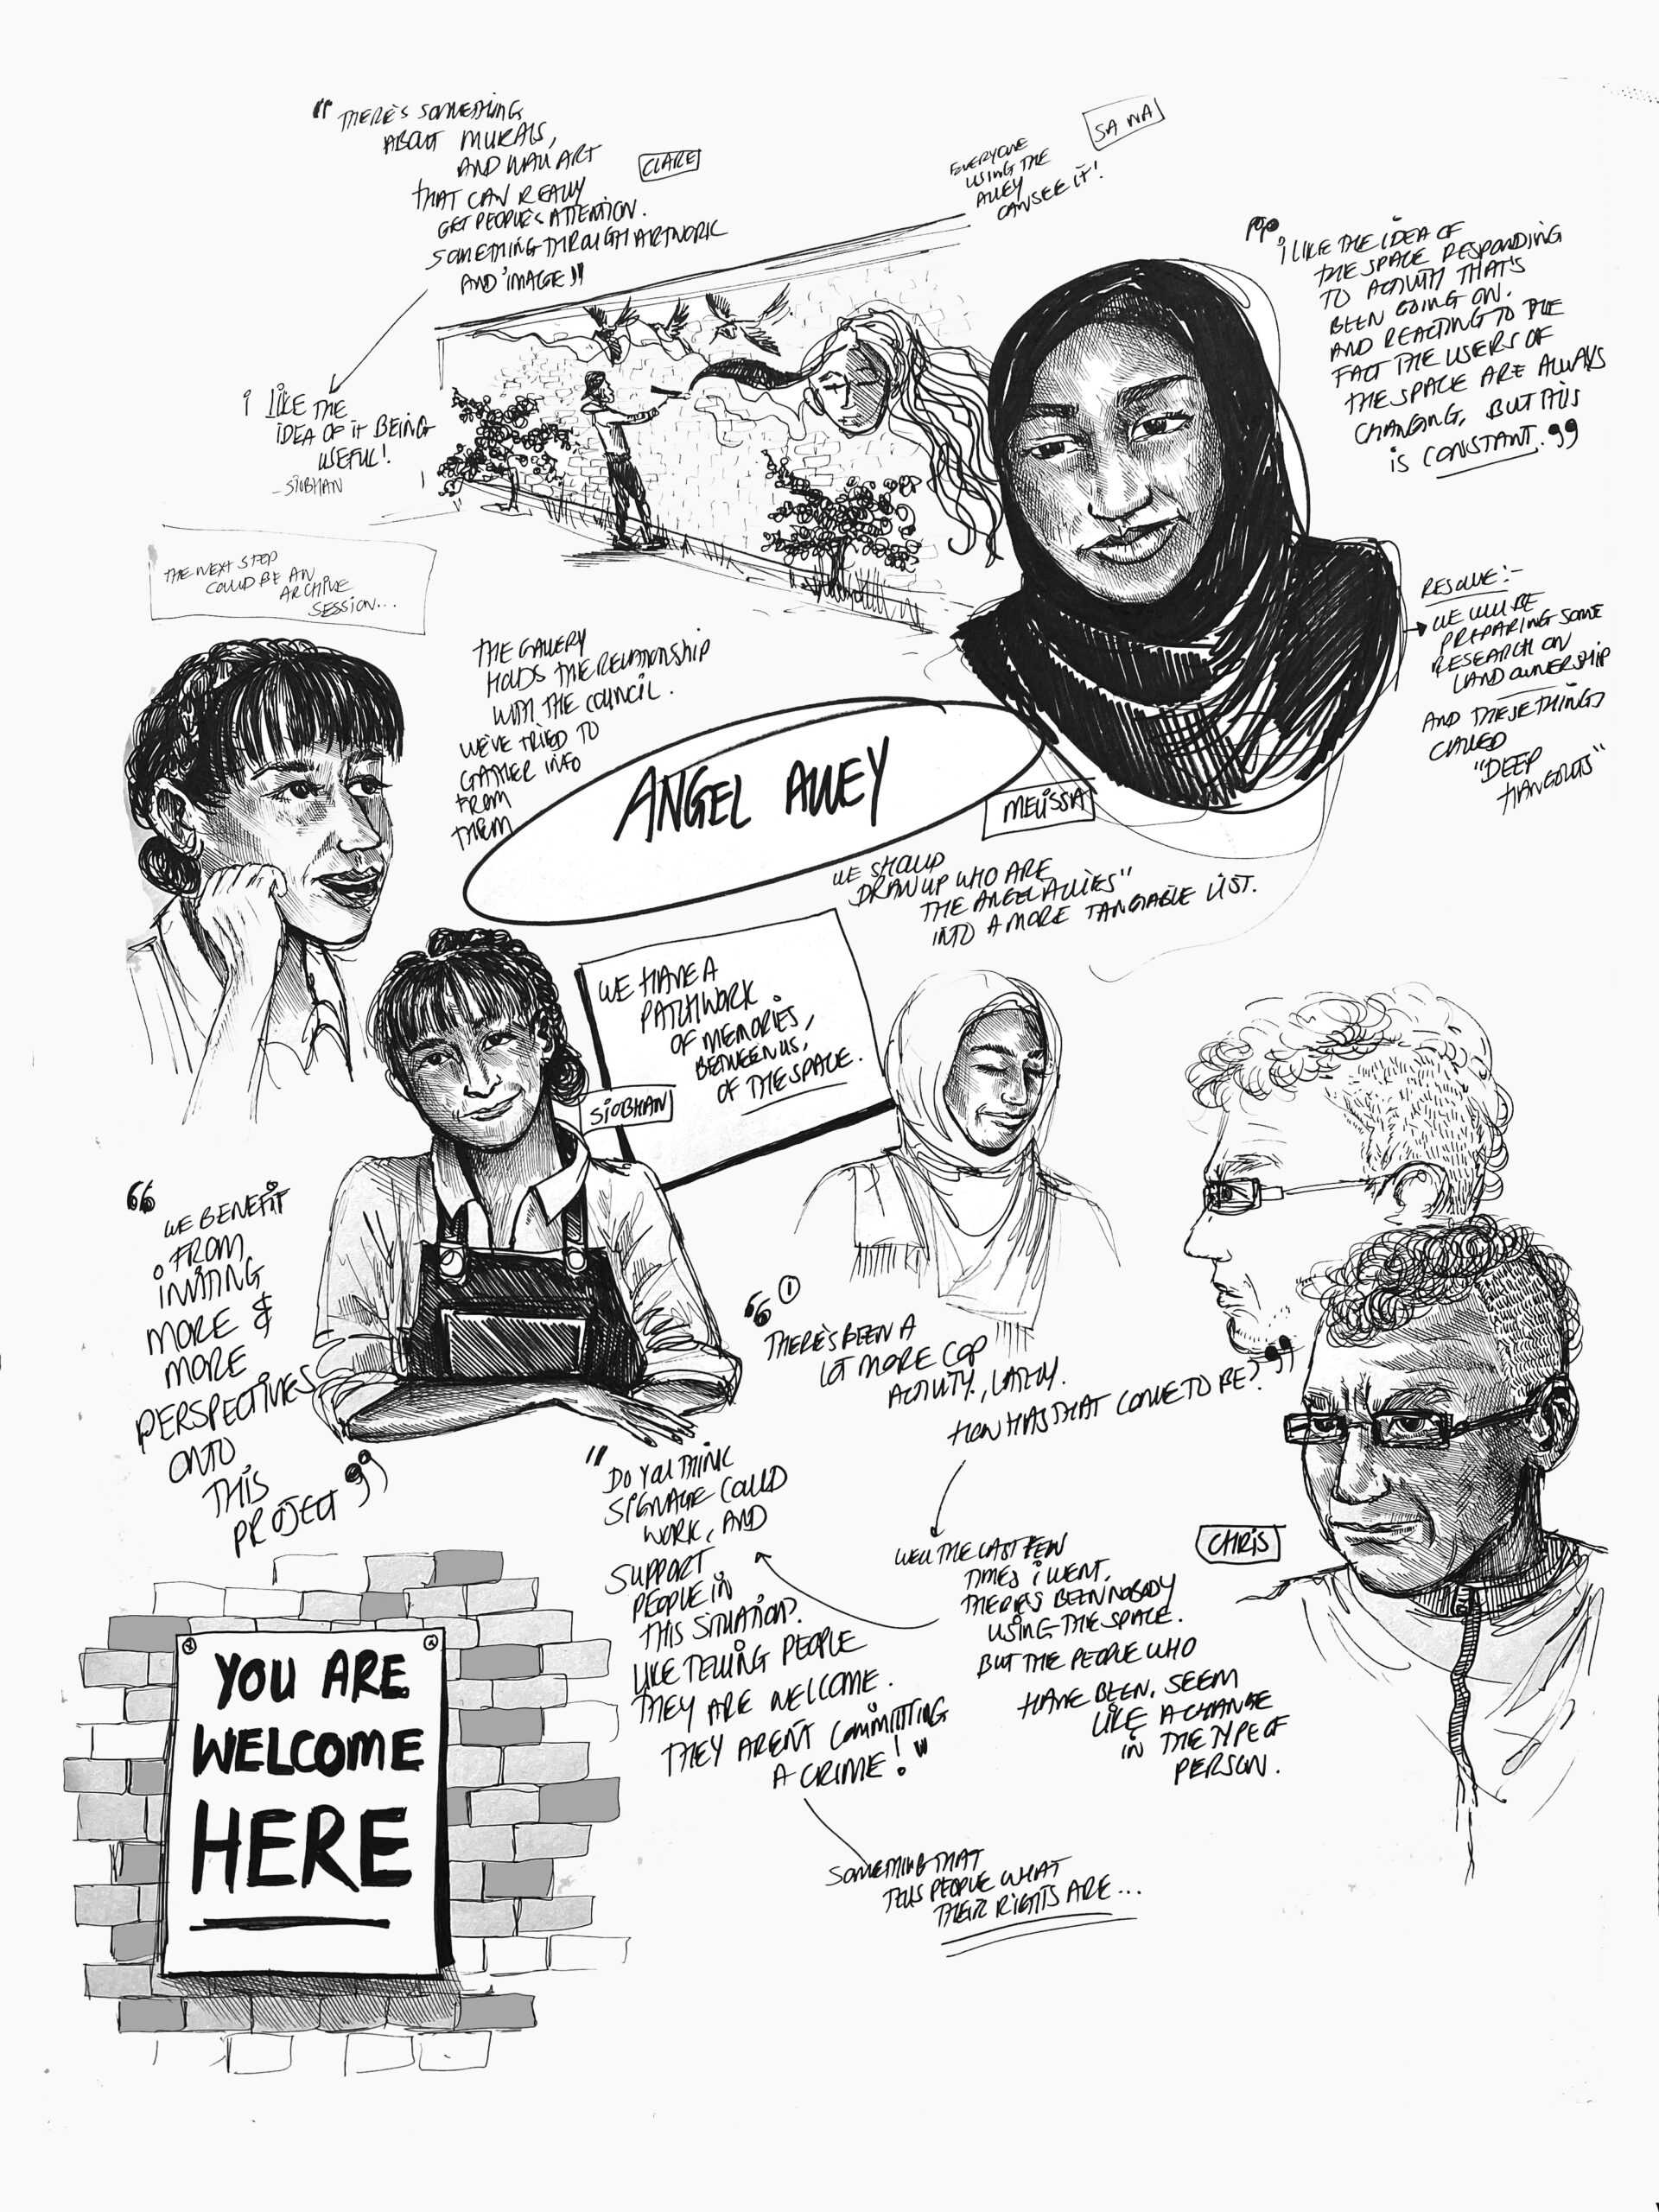 "THERE'S SOMETHING
ABOUT MURALS,
AND WALL ART
THAT CAN REALLY
GET PEOPLE'S ATTENTION.
SOMETHING THROUGH ARTWORK
AND IMAGE"
CLARE
EVERYONE
USING THE
ALLEY
CAN SEE IT!
SANA
I LIKE THE
IDEA OF IT BEING
USEFUL!
- SIOBHAN
"I LIKE THE IDEA OF
THE SPACE RESPONDING
TO ACTIVITY THAT'S
BEEN GOING ON.
AND REACTING TO THE
FACT THE USERS OF
THE SPACE ARE ALWAYS
CHANGING, BUT THIS
IS CONSTANT."
THE NEXT STEP
COULD BE AN
ARCHIVE
SESSION...
RESOLVE:-
WE WILL BE
PREPARING SOME
RESEARCH ON
LAND OWNERSHIP
AND THESE THINGS
CALLED
"DEEP
HANGOUTS"
THE GALLERY
HOLDS THE RELATIONSHIP
WITH THE COUNCIL.
WE'VE TRIED TO
GATHER INFO
FROM
THEM
ANGEL ALLEY
MELISSA
WE SHOULD
DRAW UP WHO ARE
THE ANGEL ALLIES"
INTO A MORE TANGIABLE LIST.
WE HAVE A
PATCHWORK
OF MEMORIES,
BETWEEN US,
OF THE SPACE.
SIOBHAN
"WE BENEFIT
FROM
INVITING
MORE &
MORE
PERSPECTIVES
ONTO
THIS
PROJECT"
"①
THERE'S BEEN A
LOT MORE COP
ACTIVITY, LATELY.
HOW HAS THAT COME TO BE?"
CHRIS
WELL THE LAST FEW
TIMES I WENT.
THERE'S BEEN NOBODY
USING THE SPACE.
BUT THE PEOPLE WHO
HAVE BEEN, SEEM
LIKE A CHANGE
IN THE TYPE OF
PERSON.
"DO YOU THINK
SIGNAGE COULD
WORK, AND
SUPPORT
PEOPLE IN
THIS SITUATION?
LIKE TELLING PEOPLE
THEY ARE WELCOME.
THEY AREN'T COMMITTING
A CRIME!"
SOMETHING THAT
TELLS PEOPLE WHAT
THEIR RIGHTS ARE...
YOU ARE
WELCOME
HERE